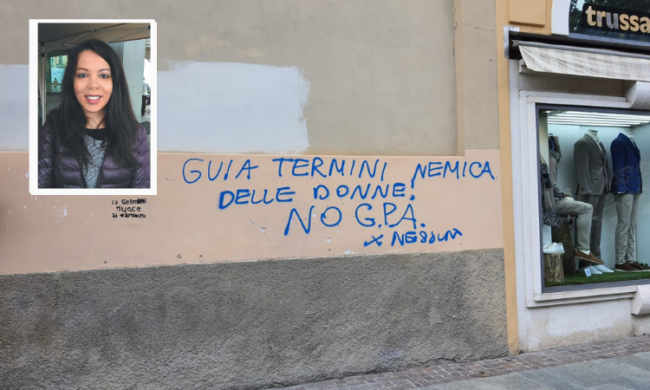 trussa
GUIA TERMINI NEMICA
DELLE DONNE!
NO G.P.A.
X NESSUNA